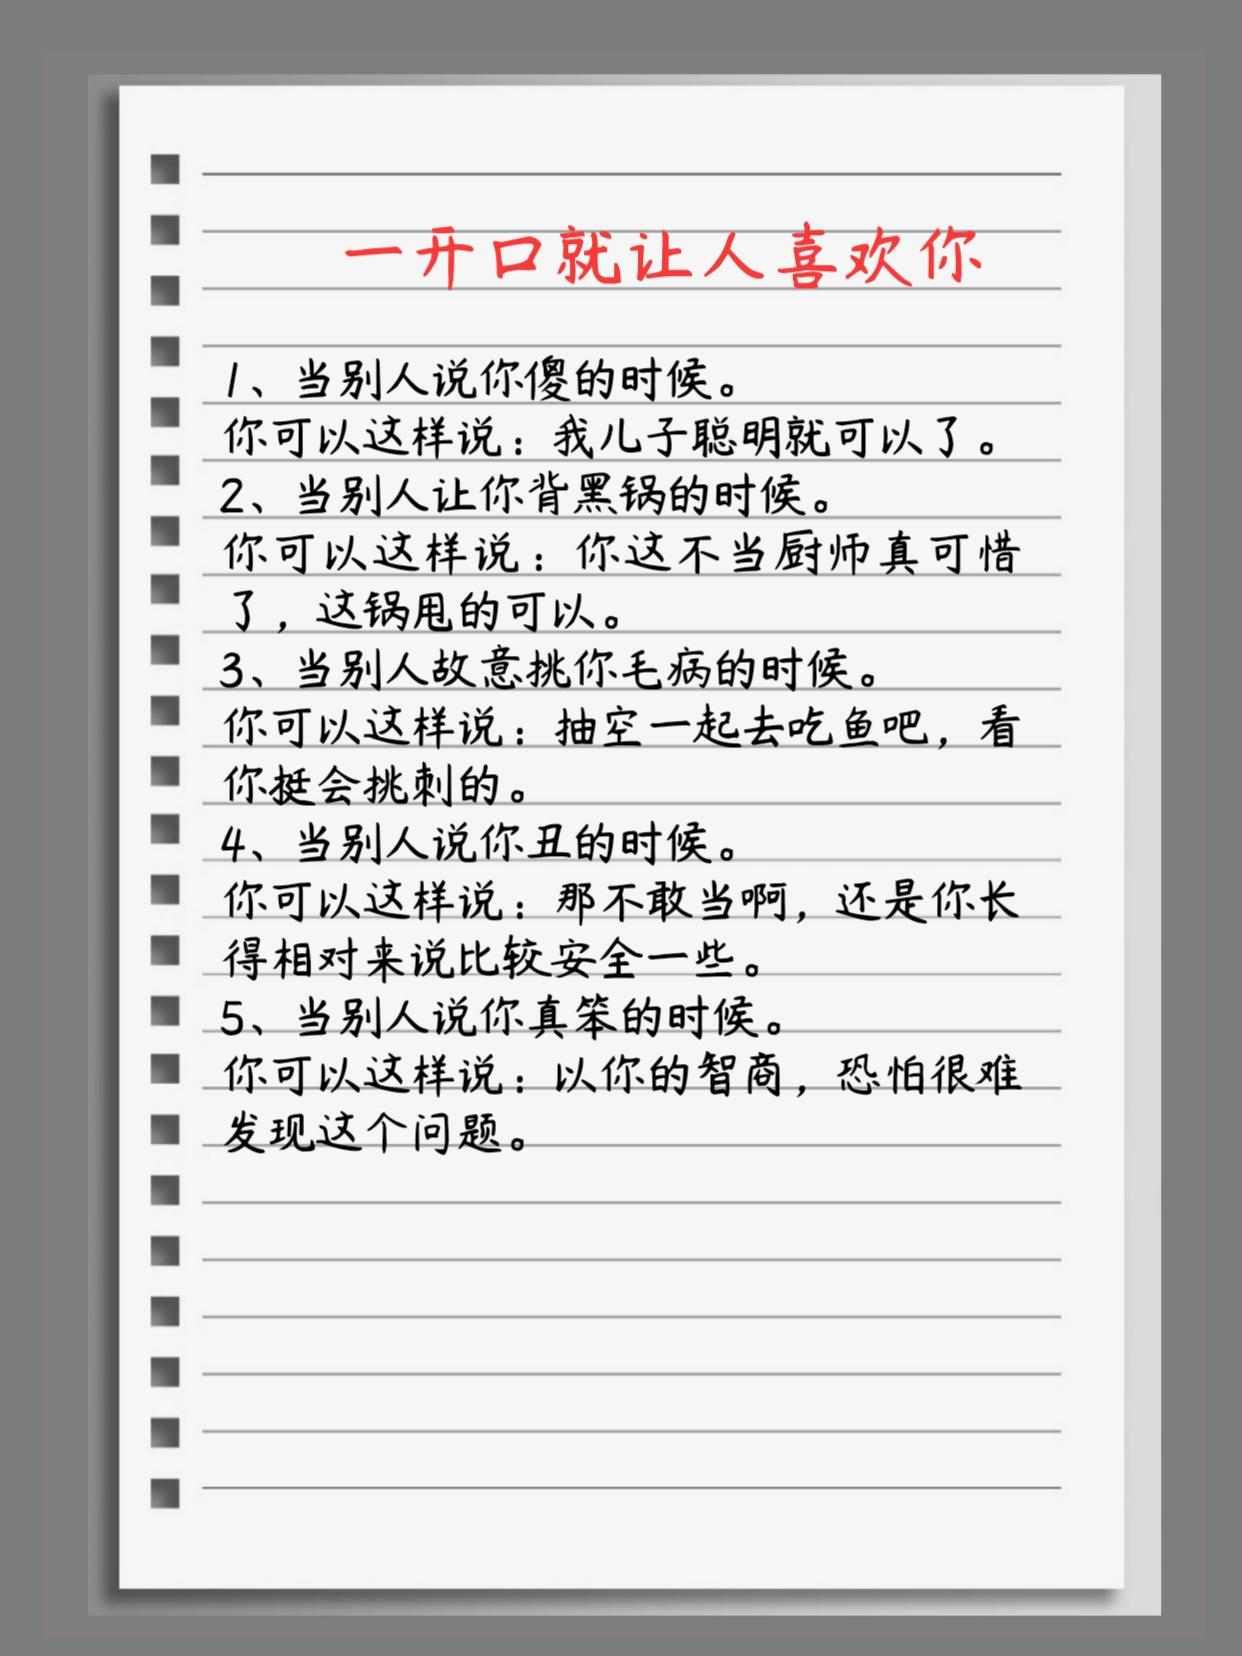 一开口就让人喜欢你
1、当别人说你傻的时候。
你可以这样说：我儿子聪明就可以了。
2、当别人让你背黑锅的时候。
你可以这样说：你这不当厨师真可惜
了，这锅甩的可以。
3、当别人故意挑你毛病的时候。
你可以这样说：抽空一起去吃鱼吧，看
你挺会挑刺的。
4、当别人说你丑的时候。
你可以这样说：那不敢当啊，还是你长
得相对来说比较安全一些。
5、当别人说你真笨的时候。
你可以这样说：以你的智商，恐怕很难
发现这个问题。